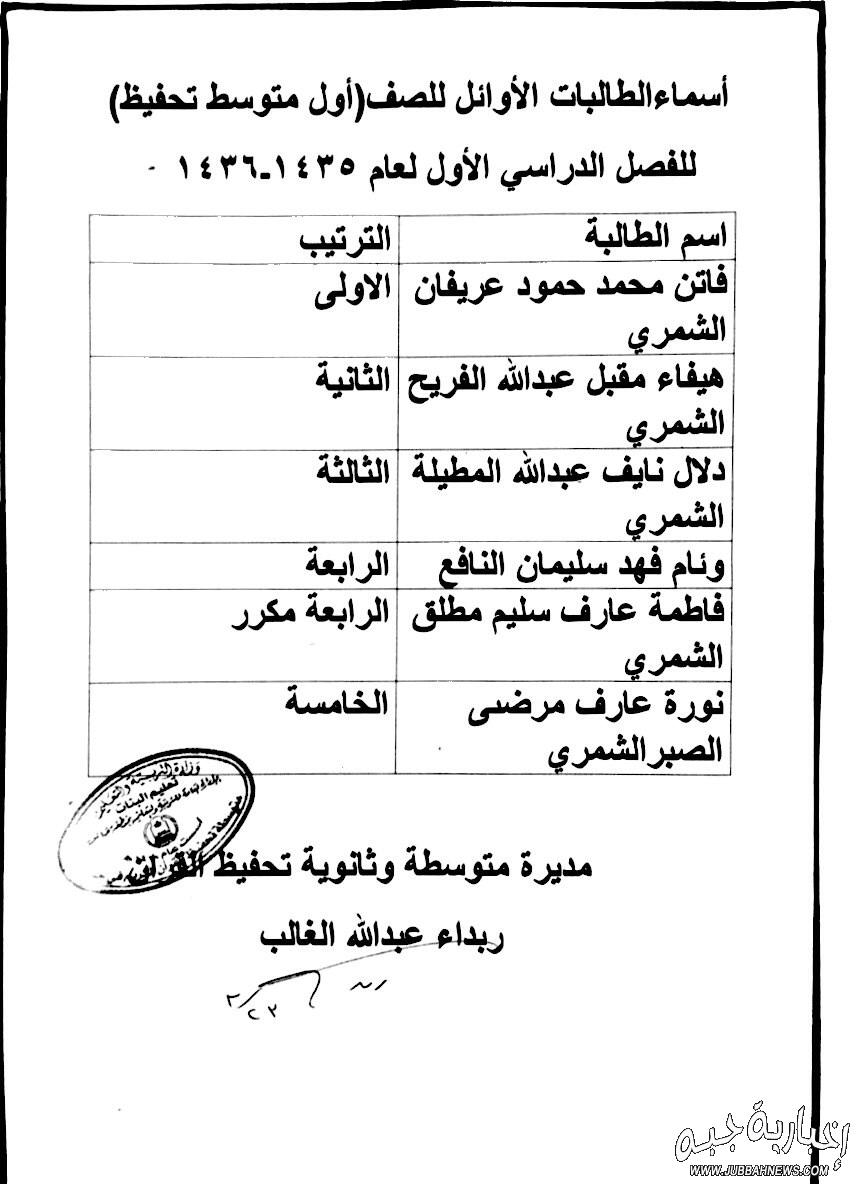 أسماءالطالبات الأوائل للصف(أول متوسط تحفيظ)
للفصل الدراسي الأول لعام ١٤٣٥-١٤٣٦
اسم الطالبة الترتيب
فاتن محمد حمود عريفان الاولى
الشمري
هيفاء مقبل عبدالله الفريح الثانية
الشمري
دلال نايف عبدالله المطيلة الثالثة
الشمري
وئام فهد سليمان النافع الرابعة
فاطمة عارف سليم مطلق الرابعة مكرر
الشمري
نورة عارف مرضى الخامسة
الصبرالشمري
وزارة التربية والتعليم
تعليم البنات
مديرة متوسطة وثانوية تحفيظ القرآن
ربداء عبدالله الغالب
إخبارية جبه
WWW.JUBBAHNEWS.COM